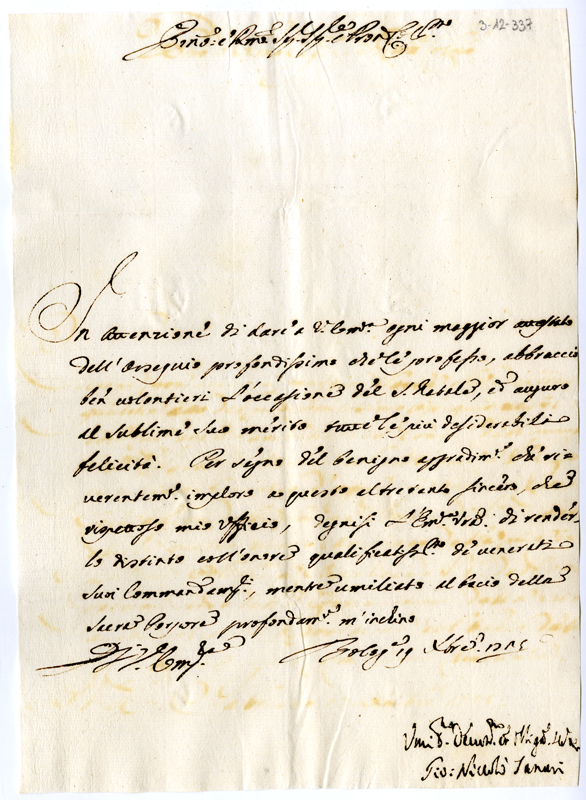 3-12-337
Emo: e Rmo Sig. Sig. e Pron Col.mo
In attenzione di dare a V. Emza ogni maggior attestato
dell'ossequio profondissimo che le professo, abbraccio
ben volontieri l'occasione del S. Natale, ed auguro
al sublime suo merito tutte le più desiderabili
felicità. Per segno del benigno aggradim.to che ri=
verentem.te imploro a questo altretanto sincero, che
rispettoso mio Ufficio, degnisi l'Em.za Vra di render=
lo distinto coll'onore qualificatiss.mo de venerati
suoi Commandam.ti, mentre umiliato al bacio della
Sacra Porpora profondam.te m'inclino
Di V. Em.za Bolog.a 19 Xbre
Umil.mo Devot.mo et Oblig.mo
Gio: Niccolò Tanari